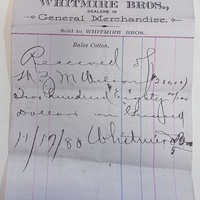 WHITMIRE BROS.,
DEALERS IN
General Merchandise.
Sold to WHITMIRE BROS.
Bales Cotton,
Received of
M Wilson
Two hundred Eighty no/100
Dollars on
11/17/88 Whitmire Bros